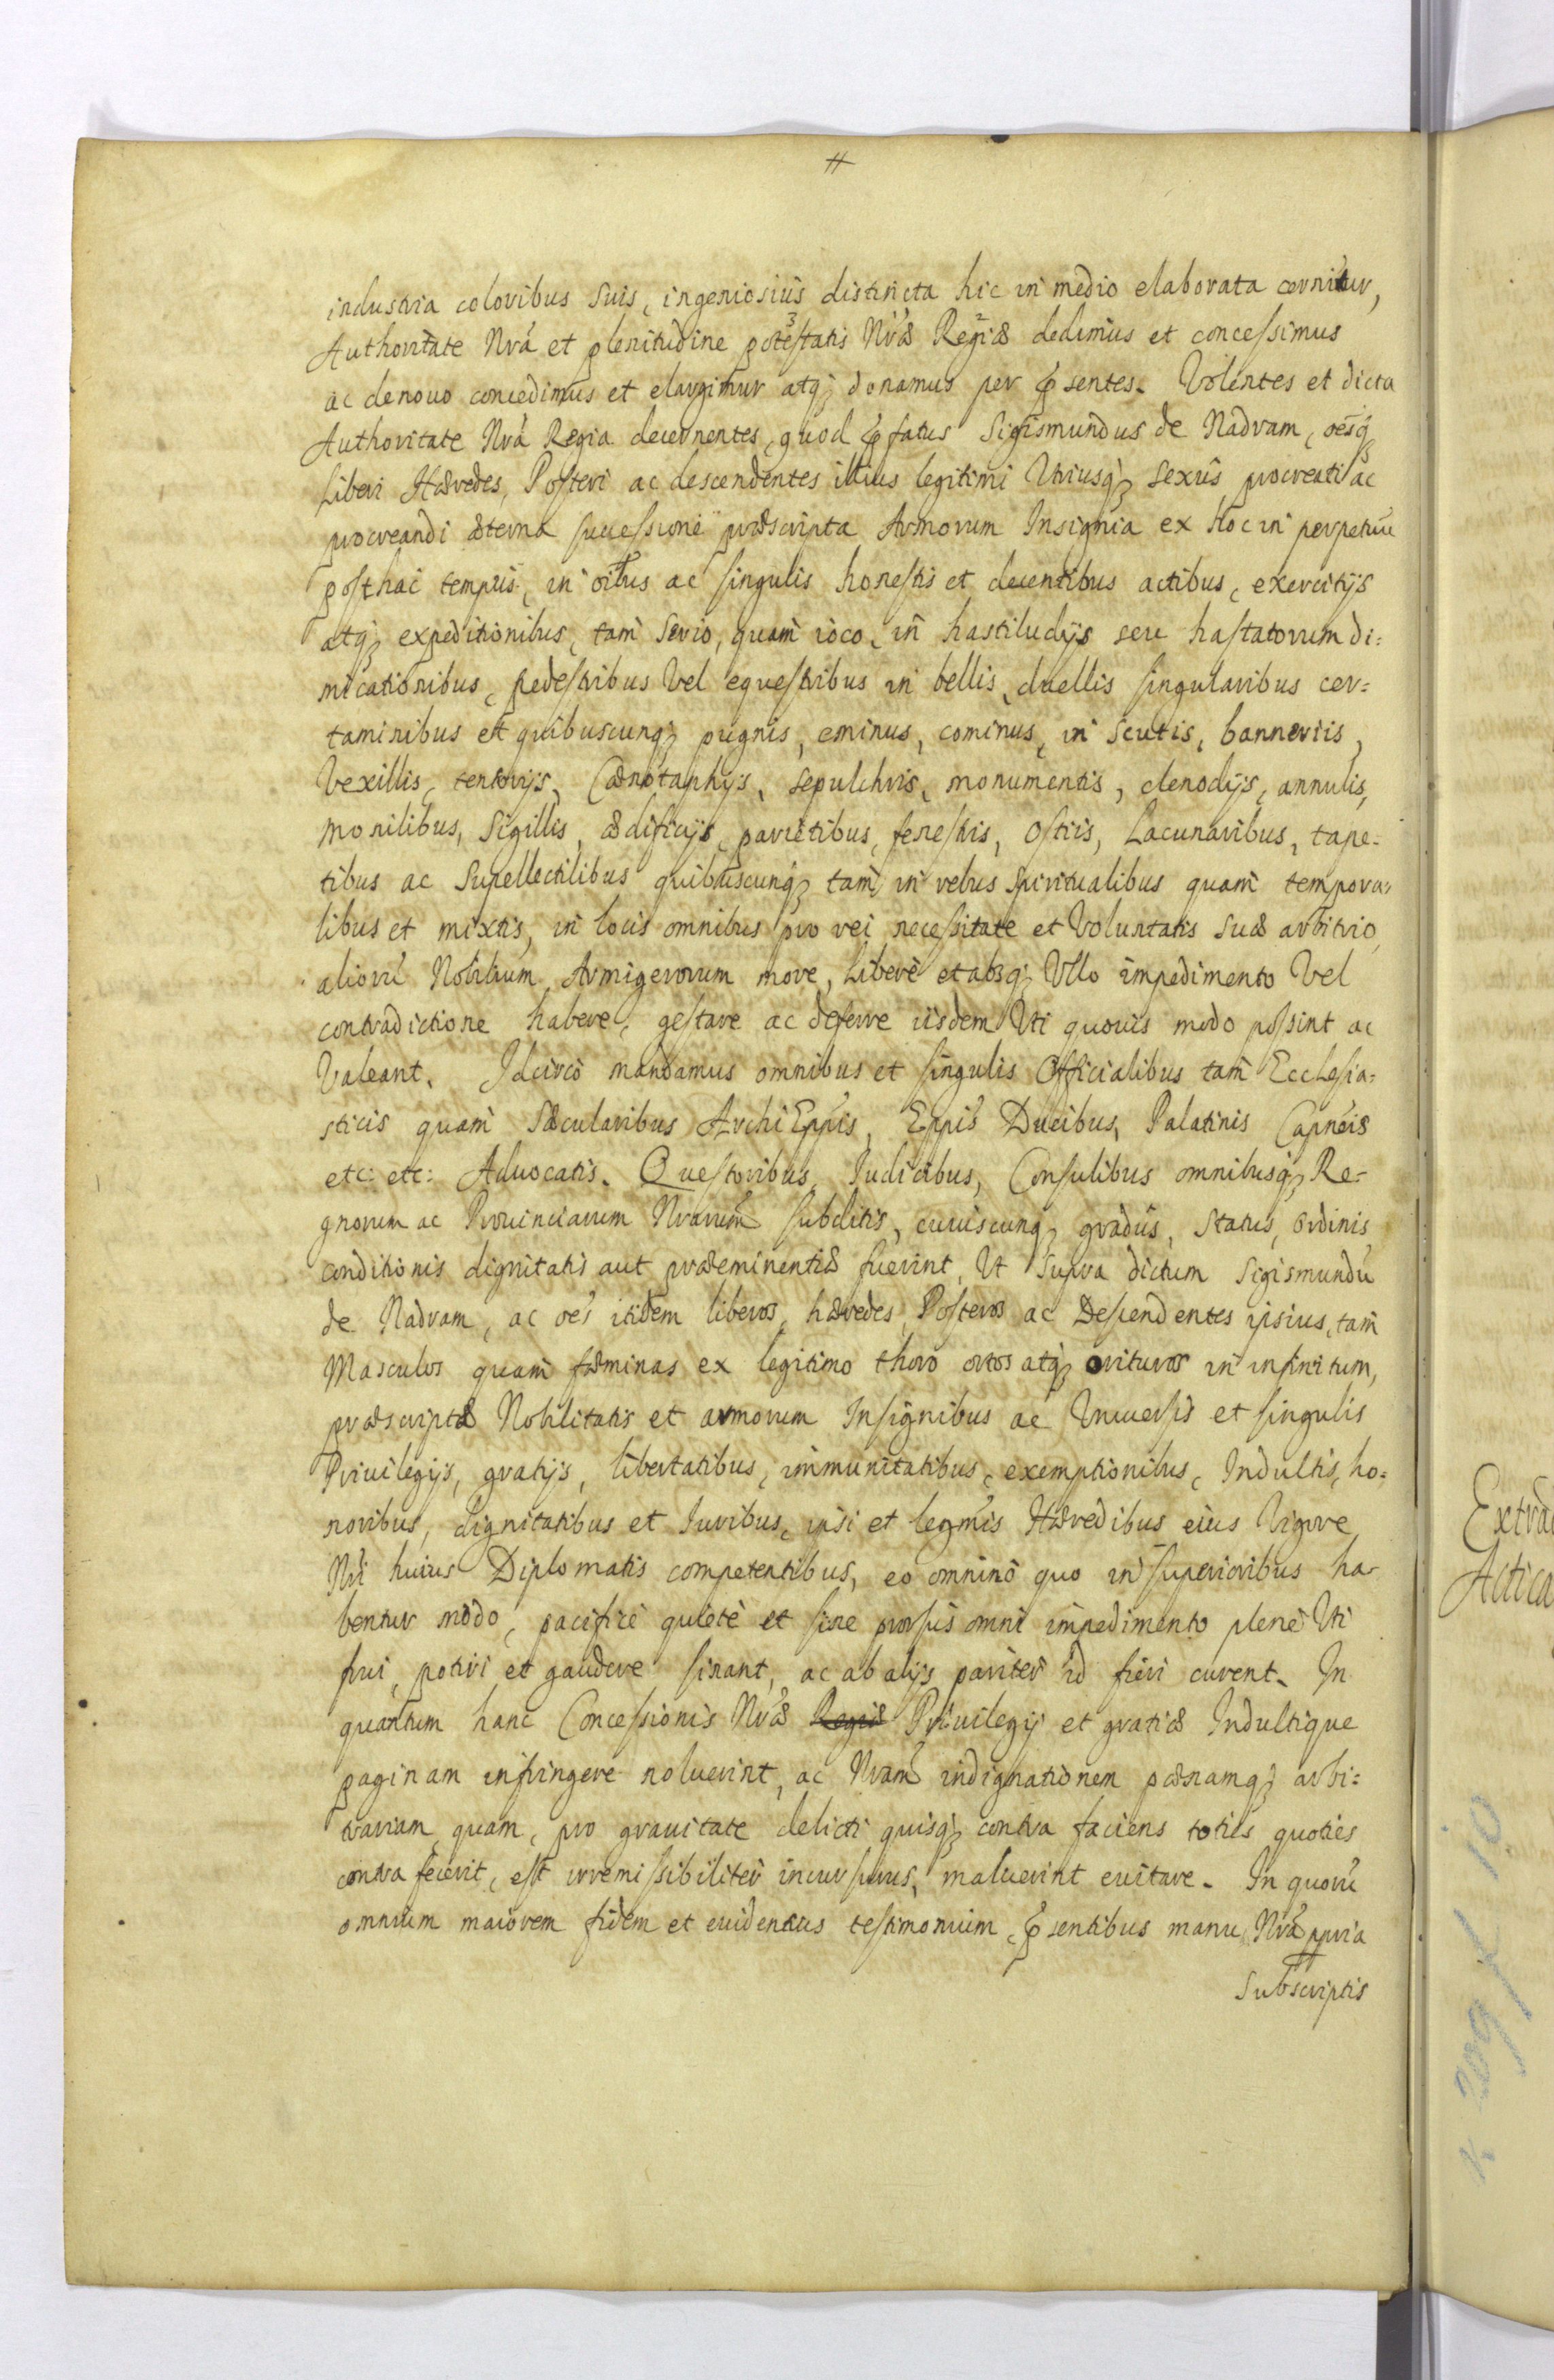 #
industria coloribus suis, ingeniosius distincta hic in medio elaborata cernitur,
Authoritate Nrâ et plenitudine potestatis Nræ Regiæ dedimus et concessimus
ac denouo concedimus et elargimur atq₃ donamus per ꝓsentes. Volentes et dicta
Authoritate Nrâ Regia decernentes, quod ꝓfatus Sigismundus de Nadram, oēsq₃
Liberi Hæredes, Posteri ac descendentes illius legitimi Vtriusq₃ sexûs procreati ac
procreandi æterna successione præscripta Armorum Insignia ex hoc in perpetuũ
posthac tempus, in oĩbus ac singulis honestis et decentibus actibus, exercitijs
atq₃ expeditionibus, tam serio, quam ioco, in hastiludijs seu hastatorum di:
micationibus, pedestribus Vel equestribus in bellis, duellis singularibus cer=
taminibus et quibuscunq₃ pugnis, eminus, cominus, in scutis, banneriis,
Vexillis, tentorijs, Cænotaphijs, sepulchris, monumentis, clenodijs, annulis,
monilibus, Sigillis, ædificijs, parietibus, fenestris, Ostiis, Lacunaribus, tape-
tibus ac Supellectilibus quibuscunq₃ tam in rebus spiritualibus quam tempora:
libus et mixtis, in locis omnibus pro rei necessitate et Voluntatis suæ arbitrio,
aliorũ Nobilium Armigerorum more, Liberè et absq₃ Vllo impedimento Vel
contradictione habere, gestare ac deferre iisdem Vti quouis modo possint ac
Valeant. Idcircò mandamus omnibus et singulis Officialibus tam Ecclesia=
sticis quam Sæcularibus ArchiEppis, Eppis Ducibus, Palatinis Capneis
etc: etc: Aduocatis. Questoribus, Iudicibus, Consulibus omnibusq₃ Re-
gnorum ac Prouinciarum Nrarum subditis, cuiuscunq₃ gradûs, status, ordinis
conditionis dignitatis aut præeminentiæ fuerint, Vt supra dictum Sigismundũ
de Nadram, ac oēs itidem liberos, hæredes, Posteros ac Descendentes ipsius, tam
Masculos quam fæminas ex legitimo thoro ortos atq₃ orituros in infinitum,
præscriptæ Nobilitatis et armorum Insignibus ac Vniuersis et singulis
Priuilegijs, gratijs, libertatibus, immunitatibus, exemptionibus, Indultis, ho=
noribus, dignitatibus et Iuribus, ipsi et legmis Hæredibus eius Vigore
Nri huius Diplomatis competentibus, eo omninò quo in superioribus ha-
bentur modo, pacificè quietè et sine prorsus omni impedimento plenè Vti
frui, potiri et gaudere sinant, ac ab alijs pariter id fieri curent. In
quantum hanc Concessionis Nræ Regiæ Priuilegij et gratiæ Indultique
paginam infringere noluerint, ac Nram indignationem pænamq₃ arbi=
trariam, quam, pro grauitate delicti quisq₃ contra faciens toties quoties
contra fecerit, est irremissibiliter incursurus, maluerint euitare. In quorũ
omnium maiorem fidem et euidentius testimonium, ꝓsentibus manu Nrâ ppria
Subscriptis